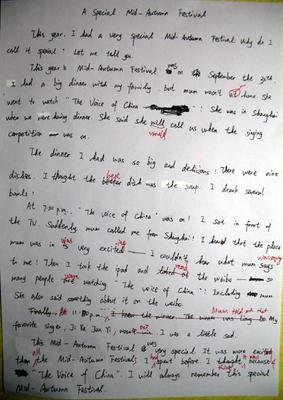 A Special Mid-Autumn Festival
This year, I had a very special Mid-Autumn Festival. Why do I
call it special? Let me tell you.
This year's Mid-Autumn Festival was on the September the 30th.
I had a big dinner with my family. but mum wasn't at home. She
went to watch "The Voice of China". She was in Shanghai
when we were having dinner. She said she will call us when the singing
would
competition was on.
The dinner I had was so big and delicious! There were nine
dishes. I thought the best dish was the soup. I drank several
bowls!
At 7:30 p.m., "The voice of China" was on! I sat in front of
the TV. Suddenly, mum called me from Shanghai! I heard that the place
mum was in was very exciting — I couldn't hear what mum says
was saying
to me! Then I took the ipad and looked at the weibo — so
many people were watching "The voice of China"! Including mum.
She also said something about it on the weibo.
Mum told me that
Finally, At 11:00 p.m.,
favorite singer, Ji Ke Jun Yi, out. I was a little sad.
This Mid-Autumn Festival was very special. It was more excited
than all the Mid-Autumn Festivals I spent before. I thought because
"The Voice of China". I will always remember this special
Mid-Autumn Festival.